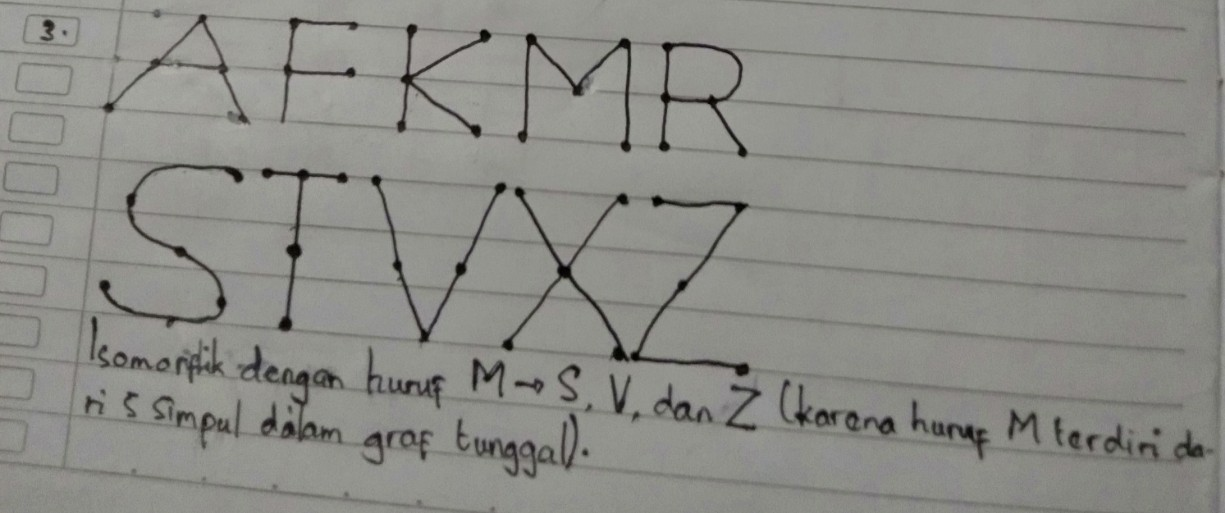 3.
A F K M R
S T V X Z
Isomorfik dengan huruf M → S, V, dan Z (karena huruf M terdiri da-
ri 5 simpul dalam graf tunggal).